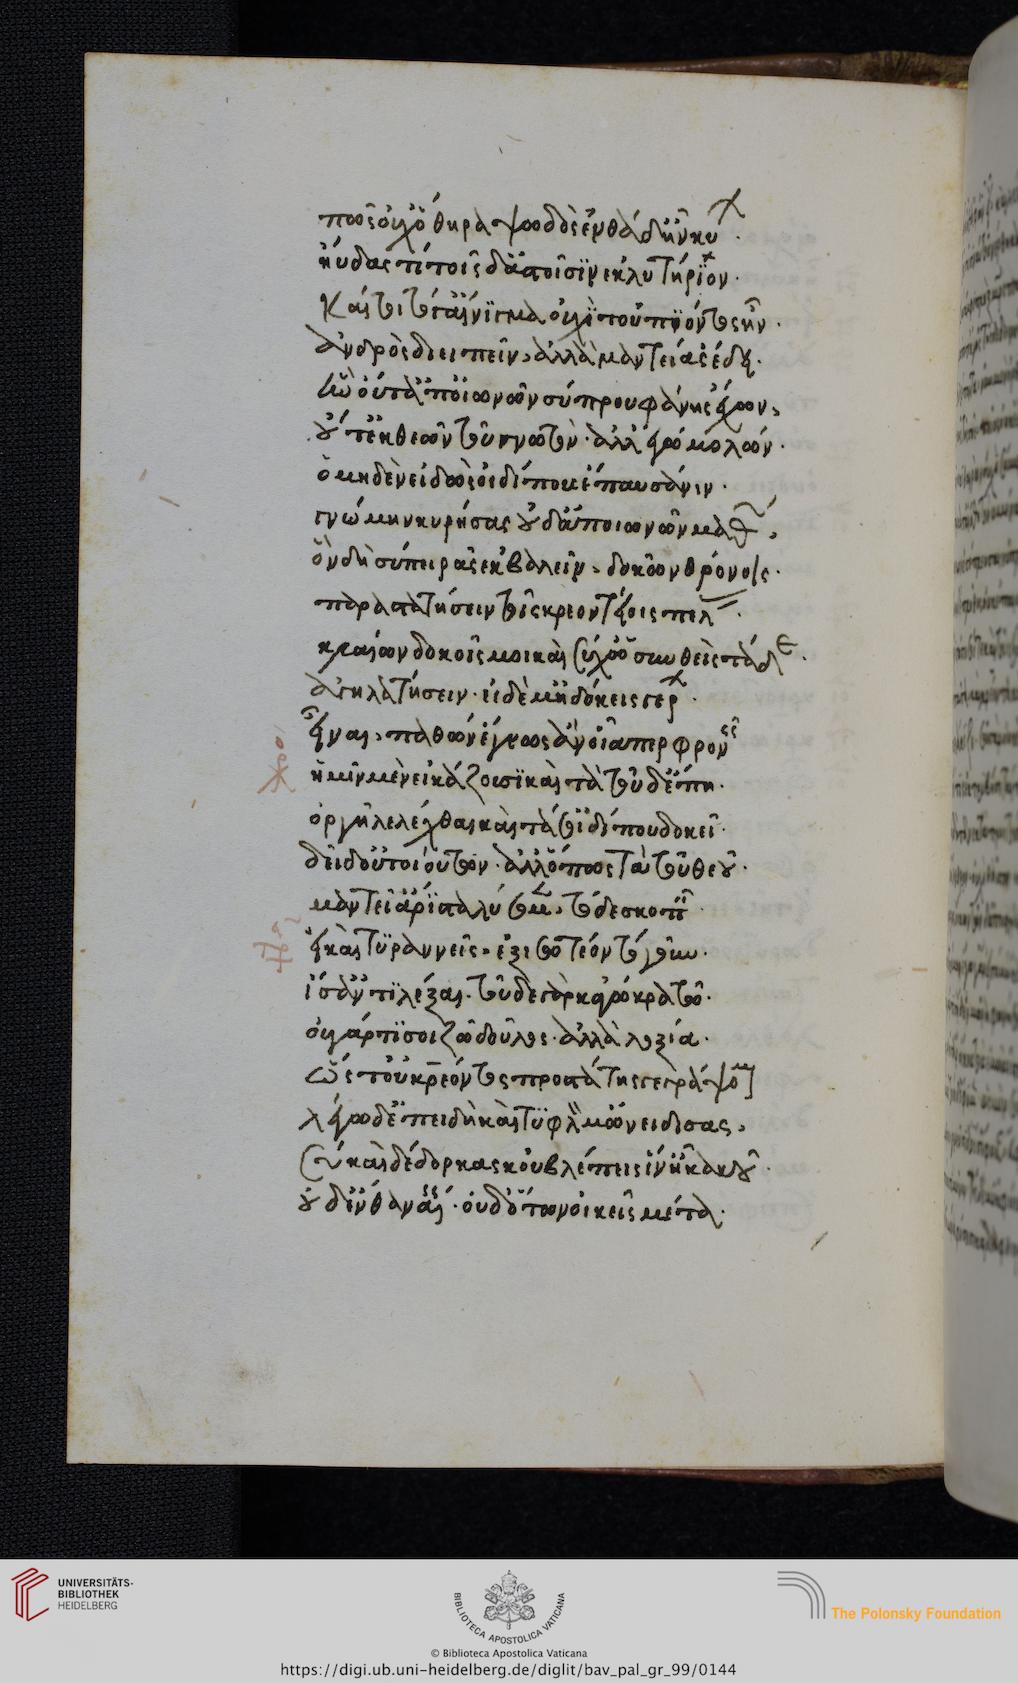 πῶς οὐχ ὅθ' ἡ ῥαψωδὸς ἐνθάδ' ἦν κύων
ηὔδας τί τοῖς δ' ἀστοῖσιν ἐκλυτήριον
καίτοι τό γ' αἴνιγμ' οὐχὶ τοὐπιόντος ἦν
ἀνδρὸς διειπεῖν, ἀλλὰ μαντείας ἔδει
ἣν οὔτ' ἀπ' οἰωνῶν σὺ προυφάνης ἔχων,
οὔτ' ἐκ θεῶν του γνωτόν· ἀλλ' ἐγὼ μολών
ὁ μηδὲν εἰδὼς οἰδίπους ἔπαυσά νιν
γνώμη κυρήσας οὐδ' ἀπ' οἰωνῶν μαθών,
ὃν δὴ σὺ πειρᾶς ἐκβαλεῖν, δοκῶν θρόνοις
παραστατήσειν τοῖς κρεοντείοις πέλας
κλαίων δοκεῖς μοι καὶ σὺ χὠ συνθεὶς τάδε
ἀγηλατήσειν· εἰ δὲ μὴ δόκεις γέρων
εἶναι, παθὼν ἔγνως ἂν οἷά περ φρονεῖς
ἡμῖν μὲν εἰκάζουσι καὶ τὰ τοῦδ' ἔπη
ὀργῇ λελέχθαι καὶ τά σ' οἰδίπου δοκεῖ
δεῖ δ' οὐ τοιούτων· ἀλλ' ὅπως τὰ τοῦ θεοῦ
μαντεῖ' ἄριστα λύσομεν, τόδε σκοπεῖν
εἰ καὶ τυραννεῖς, ἐξισωτέον τὸ γοῦν
ἴσ' ἀντιλέξαι· τοῦδε γὰρ κἀγὼ κρατῶ
οὐ γάρ τι σοὶ ζῶ δοῦλος· ἀλλὰ λοξία
ὥστ' οὐ κρέοντος προστάτου γεγράψομαι
λέγω δ' ἐπειδὴ καὶ τυφλόν μ' ὠνείδισας,
σὺ καὶ δέδορκας κοὐ βλέπεις ἵν' εἶ κακοῦ
οὐδ' ἔνθα ναίεις· οὐδ' ὅτων οἰκεῖς μέτα
UNIVERSITÄTS-
BIBLIOTHEK
HEIDELBERG
BIBLIOTECA APOSTOLICA VATICANA
The Polonsky Foundation
© Biblioteca Apostolica Vaticana
https://digi.ub.uni-heidelberg.de/diglit/bav_pal_gr_99/0144